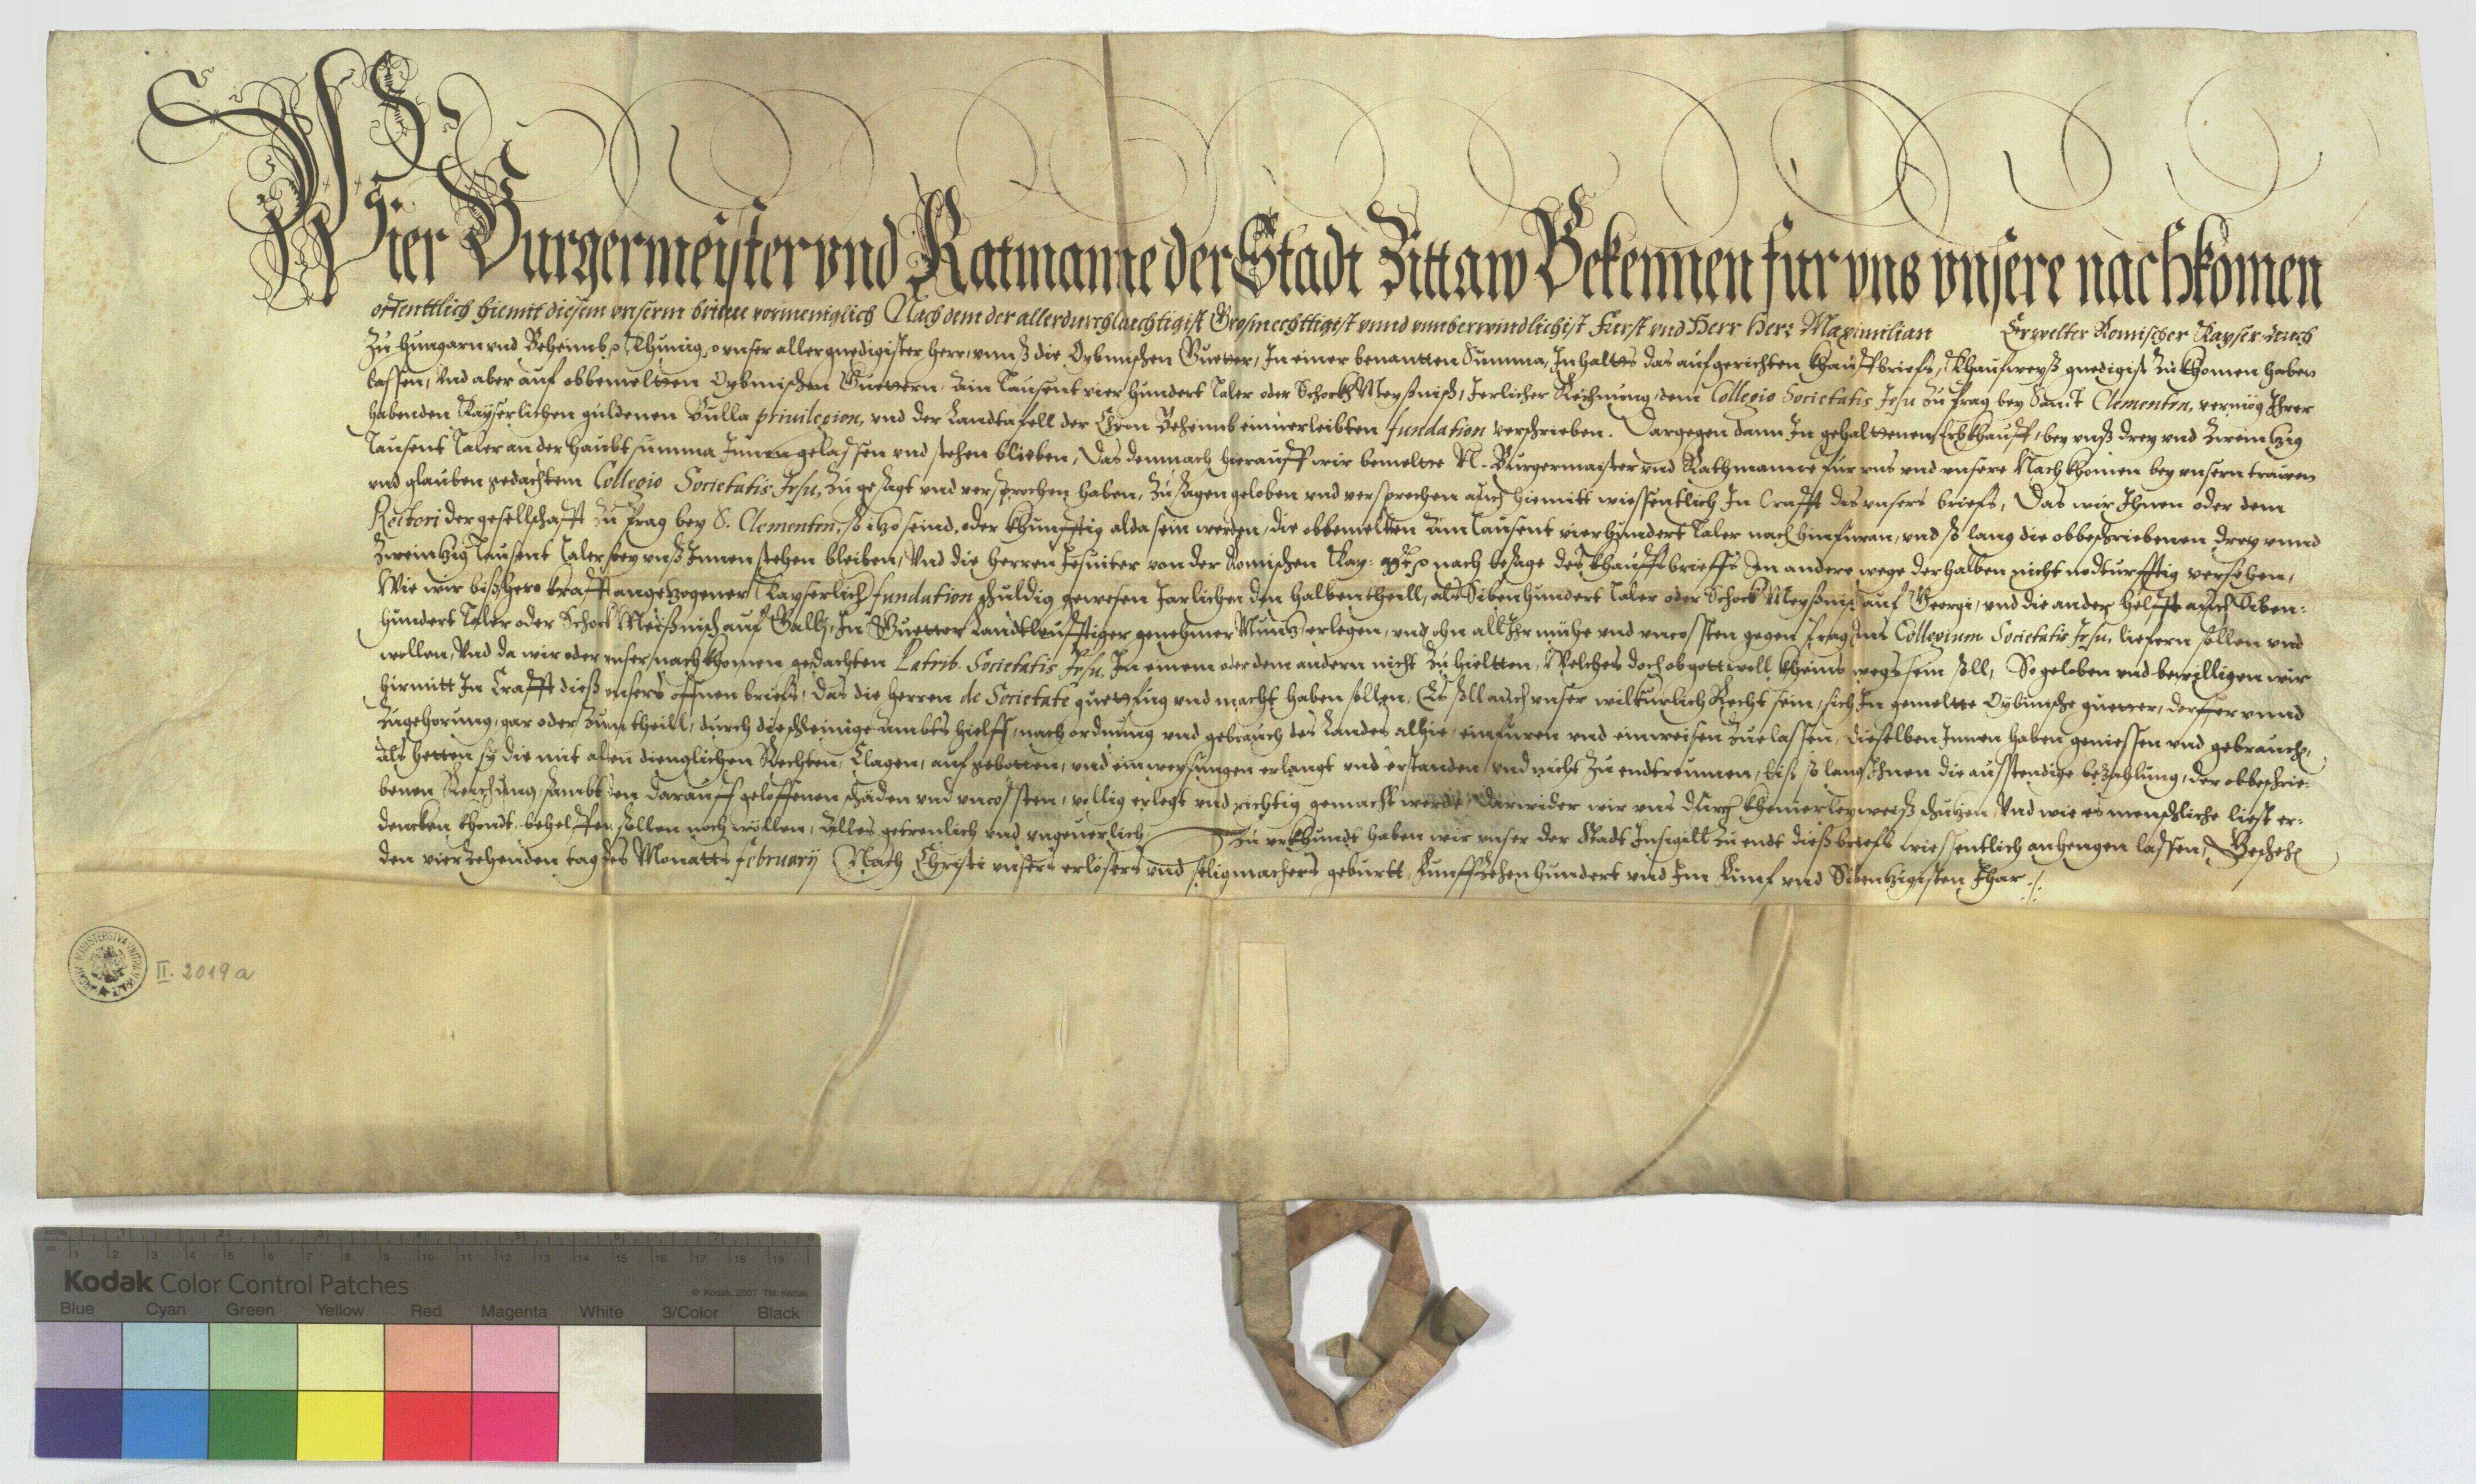 Wier Burgermeister vnd Ratmanne der Stadt Zittaw Bekennen fur vns vnsere nachkomen
offenttlich hiemit diesem vnserm brieue vormeniglich Nach dem der allerdurchlauchtigist Grosmechttigist vnnd vnnberwindlichist Furst vnd Herr Herr Maximilian Erwelter Romischer Kayser auch
Zu Hungarn vnd Beheimb Khunig vnser allergnedigister herr, vnnß die Oybinischen Guetter, In einer benantten Summa, Inhaltts das aufgerichten khauffbriefs, khaufweyß gnedigist zukhomen haben
lassen, Vnd aber auf obbemeltten Oybinischen Guettern, Ain Tausent vier hundert Taler oder Schockh Meyßnisch, Jerlicher Reichnung, dem Collegio Societatis Jesu zu Prag bey Sanct Clementen, vermög Ihrer
habenden Kayserlichen guldenen Bulla priuilegion, vnd der Landtafell der Cron Behemb einuerleibten fundation verschrieben. Dargegen dann In gehalttenem Erbkhauff, bey vnß drey vnd Zweintzig
Tausent Taler an der haubt summa Innen gelassen vnd stehen blieben, Das demnach hierauff wir bemeltte N. Burgermaister vnd Rathmanne für vns vnd vnsere Nachkhomen bey vnsern trauen
vnd glauben gedachtem Collegio Societatis Jesu, zu gesagt vnd versprochen haben, Zusagen geloben vnd versprechen auch hiemitt wiessentlich In Crafft dis vnsers briefs, Das wir Ihnen oder dem
Rectori der gesellschafft zu Prag bey S. Clementen, so itzo seind, oder khunfftig alda sein werden, die obbemelten Ain Tausent vierhundert Taler nach hinfuran, vnd so lang die obbeschriebenen drey vnnd
Zweintzig Tausent Taler bey vnß Innen stehen bleiben, Vnd die Herren Jesuiter von der Romischen Kay: Mt: nach besage des khauffbrieffs In andere wege derhalben nicht notturfftig versehen,
Wie wir bißhero krafft angezogener Kayserlich fundation schuldig gewesen Jarlichen den halben theill, als Sibenhundert Taler oder Schock Meyßnisch auf Georgi, vnd die ander helfft auch Siben:
hundert Taler oder Schock Meißnisch auf Galli, In Guetter Landtleufftiger genehmer Muntz erlegen, vnd ohn all Ihr mühe vnd vncossten gegen Prag Ins Collegium Societatis Jesu, liefern sollen vnd
wollen, Vnd da wir oder vnser nachkhomen gedachten Patrib. Societatis Jesu, In einem oder dem andern nicht zu hieltten, Welches doch ob gott will kheins wegs sein soll, So geloben vnd bewilligen wir
hirmitt In Crafft dieß vnsers offnen briefs, Das die Herren de Societate guett fug vnd macht haben sollen, Es soll auch vnser wilkurlich Recht sein, sich In gemeltte Oybinische guetter, dorffer vnnd
Zugehorung, gar oder zum theill, durch die schleinige Ambts hielff, nach ordnung vnd gebrauch des Landes alhie, einfuren vnd einweisen zuelassen, dieselben Innen haben geniessen vnd gebrauchen,
als hetten sy die mit allen dienglichen Rechten, Clagen, auf gebotten, vnd einweysungen erlangt vnd erstanden, vnd nicht zu endtreumen, biß so lang Ihnen die ausstendige bezahlung, der obbeschrie:
benen Reichung, sambt den darauff geloffenen schäden vnd vncossten, vollig erlegt vnd richtig gemacht werde, Darwider wir vns durch kheinerley weiß schutzen, Vnd wie es menschliche liest er:
dencken khondt, behelffen sollen noch wöllen, Alles getreulich vnd vngeuerlich. Zu vrkhundt haben wir vnser der Stadt Insigill zu endt dieß briefs wiessentlich anhengen lassen, Geschehen
den vierzehenden tag des Monatts February Nach Christi vnsers erlösers vnd seligmachers geburtt, Funffzehen hundert vnd Im Funf vnd Sibentzigisten Ihar ./.
II. 2019 a
Kodak Color Control Patches
© Kodak, 2007 TM: Kodak
Blue Cyan Green Yellow Red Magenta White 3/Color Black